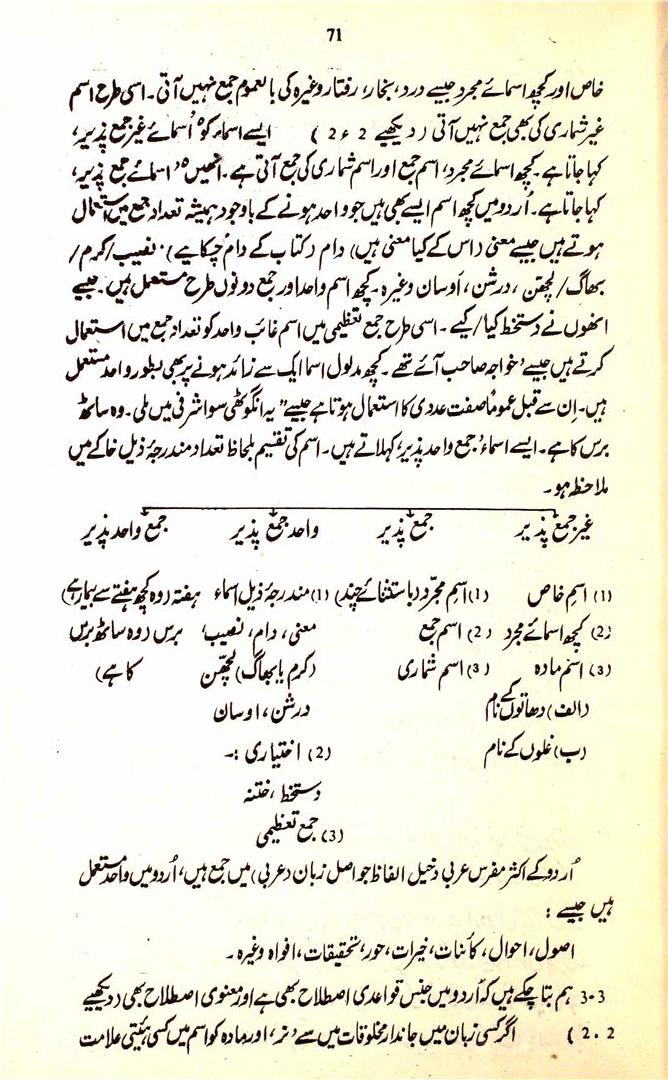 71
خاص اور کچھ اسمائے مجرد جیسے درد، بخار، رفتار وغیرہ کی بالعموم جمع نہیں آتی۔ اسی طرح اسم
غیر شماری کی بھی جمع نہیں آتی (دیکھیے 2 ء 2) ایسے اسماء کو 'اسمائے غیر جمع پذیر'
کہا جاتا ہے۔ کچھ اسمائے مجرد، اسم جمع اور اسم شماری کی جمع آتی ہے۔ انھیں 'اسمائے جمع پذیر'
کہا جاتا ہے۔ اُردو میں کچھ اسم ایسے بھی ہیں جو واحد ہونے کے باوجود ہمیشہ تعداد جمع میں استعمال
ہوتے ہیں جیسے معنی (اس کے کیا معنی ہیں) دام (کتاب کے دام چکائیے)۔ نصیب/کرم/
بھاگ/لچھّن، درشن، اَوسان وغیرہ۔ کچھ اسم واحد اور جمع دونوں طرح مستعمل ہیں۔ جیسے
انھوں نے دستخط کیا/کیے۔ اسی طرح جمع تعظیمی میں اسم غائب واحد کو تعداد جمع میں استعمال
کرتے ہیں جیسے 'خواجہ صاحب آئے تھے۔ کچھ مدلول اسما ایک سے زائد ہونے پر بھی بطور واحد مستعمل
ہیں۔ اِن سے قبل عموماً صفت عددی کا استعمال ہوتا ہے جیسے "یہ انگوٹھی سو اشرفی میں ملی۔ وہ ساٹھ
برس کا ہے۔ ایسے اسماء 'جمع واحد پذیر' کہلاتے ہیں۔ اسم کی تقسیم بلحاظ تعداد مندرجۂ ذیل خاکے میں
ملاحظہ ہو۔
غیر جمع پذیر جمع پذیر واحد جمع پذیر جمع واحد پذیر
(1) اسم خاص (1) اسم مجرّد (باستثنائے چند) (1) مندرجۂ ذیل اسماء ہفتہ (وہ کچھ ہفتے سے بیمار ہے)
(2) کچھ اسمائے مجرد (2) اسم جمع معنی، دام، نصیب، برس (وہ ساٹھ برس
(3) اسم مادہ (3) اسم شماری (کرم یا بھاگ) لچھّن کا ہے)
(الف) دھاتوں کے نام درشن، اوسان
(ب) غلوں کے نام (2) اختیاری :۔
دستخط، ختنہ
(3) جمع تعظیمی
اُردو کے اکثر مفرس عربی دخیل الفاظ جو اصل زبان (عربی) میں جمع ہیں، اُردو میں واحد مستعمل
ہیں جیسے :
اصول، احوال، کائنات، خیرات، حور، تحقیقات، افواہ وغیرہ۔
3-3 ہم بتا چکے ہیں کہ اُردو میں جنس قواعدی اصطلاح بھی ہے اور معنوی اصطلاح بھی (دیکھیے
2.2) اگر کسی زبان میں جاندار مخلوقات میں سے 'نر' اور مادہ کو اسم میں کسی ہیئتی علامت